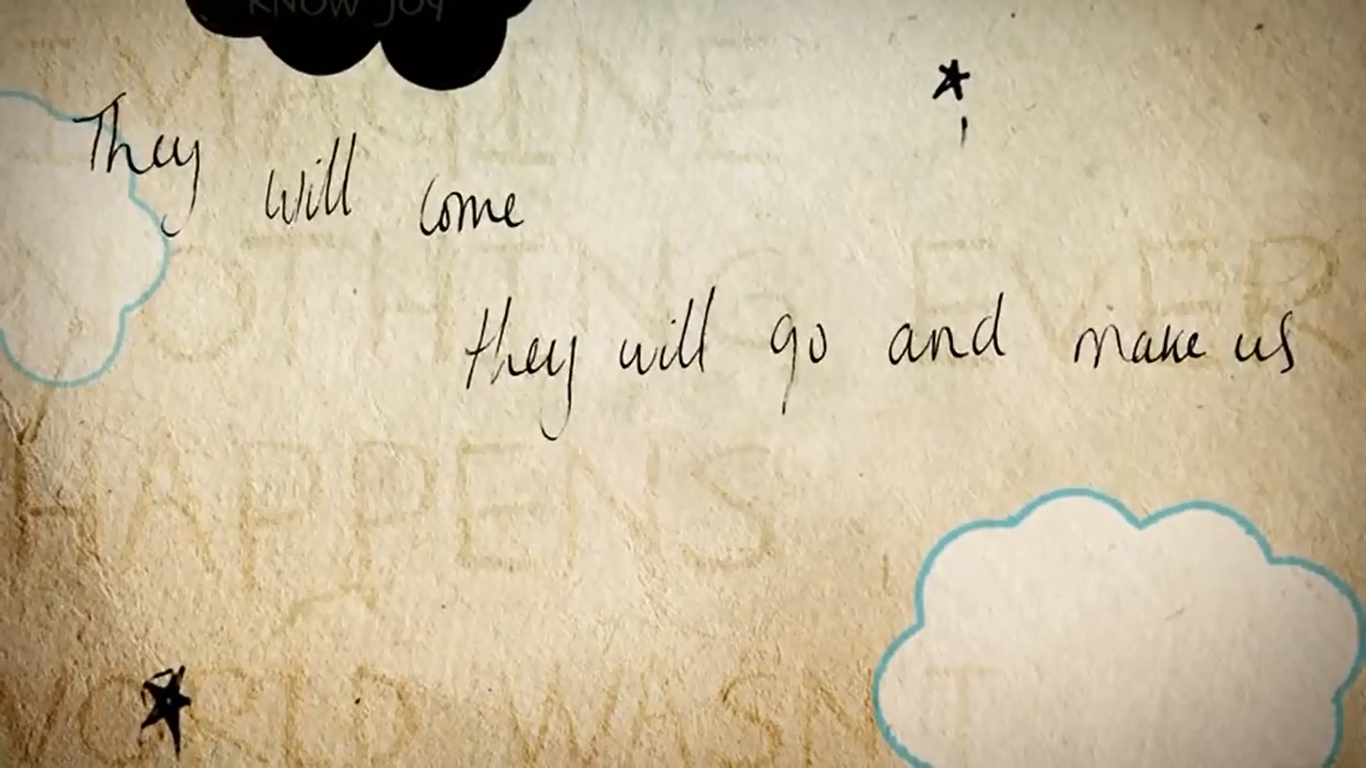 KNOW JOY
IMAGINE
They will come
NOTHING EVER
they will go and make us
HAPPENS
WORLD WASN'T